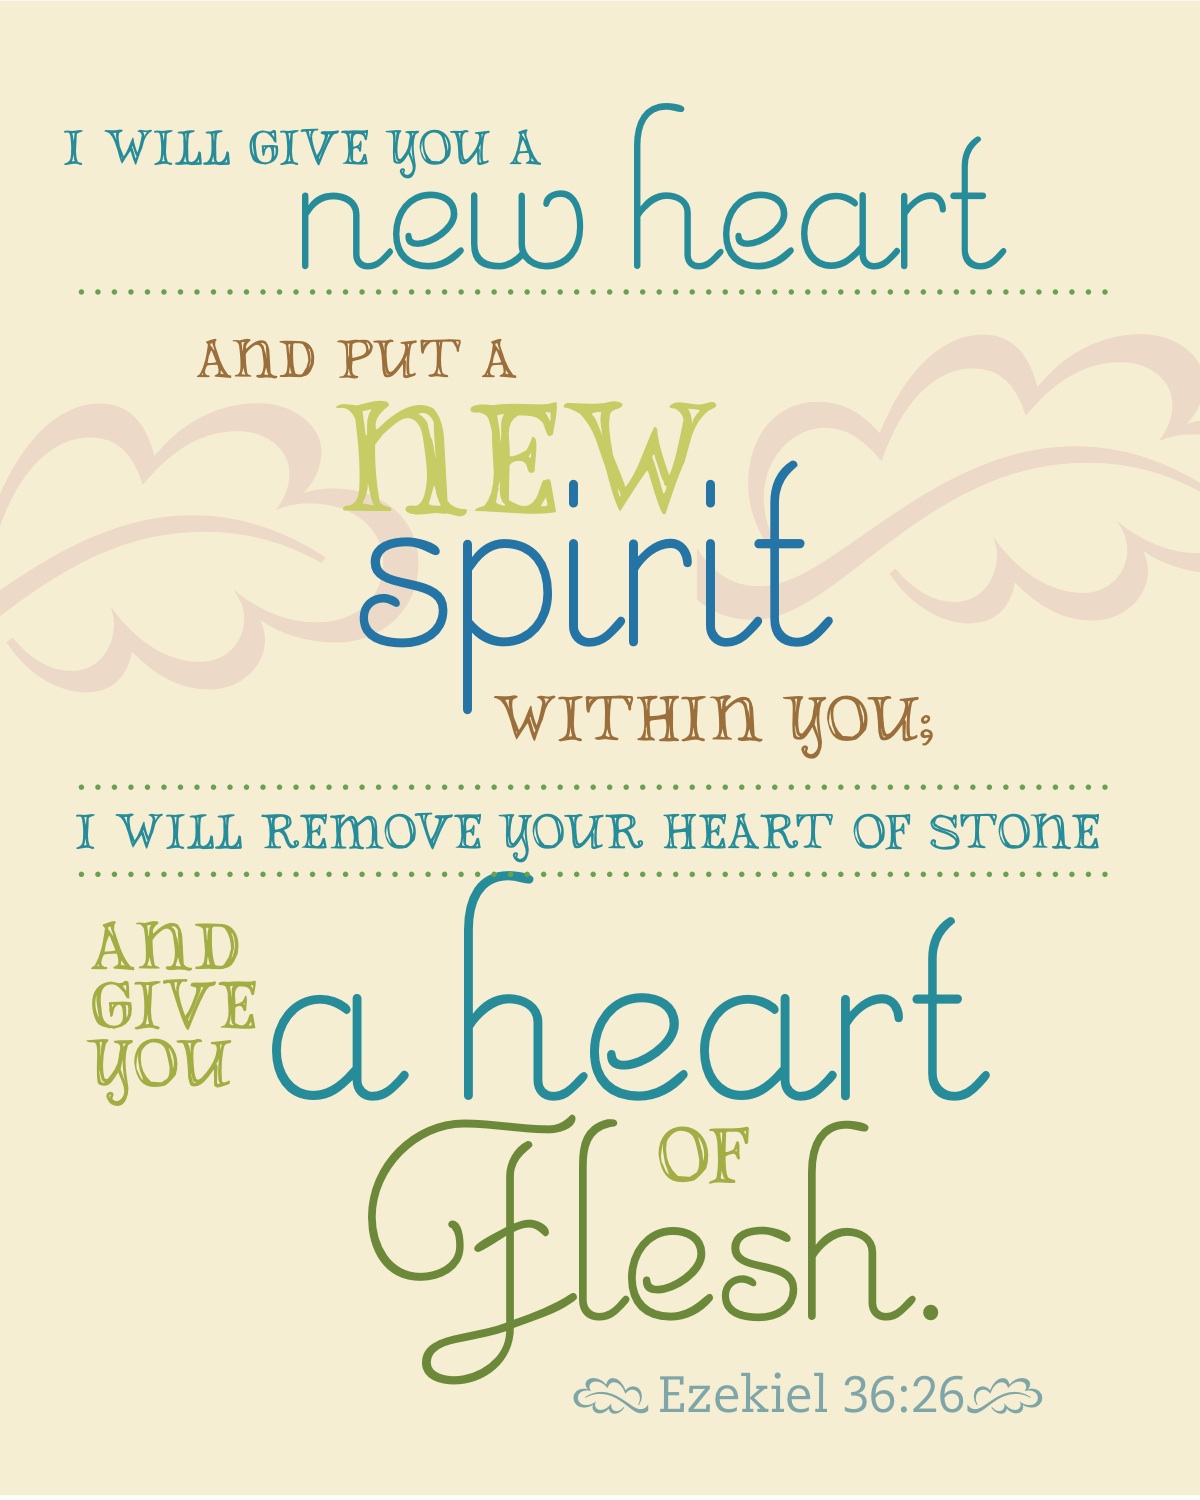 I WILL GIVE YOU A
new heart
AND PUT A
NEW
spirit
WITHIN YOU;
I WILL REMOVE YOUR HEART OF STONE
AND
GIVE
YOU
a heart
OF
Flesh.
Ezekiel 36:26